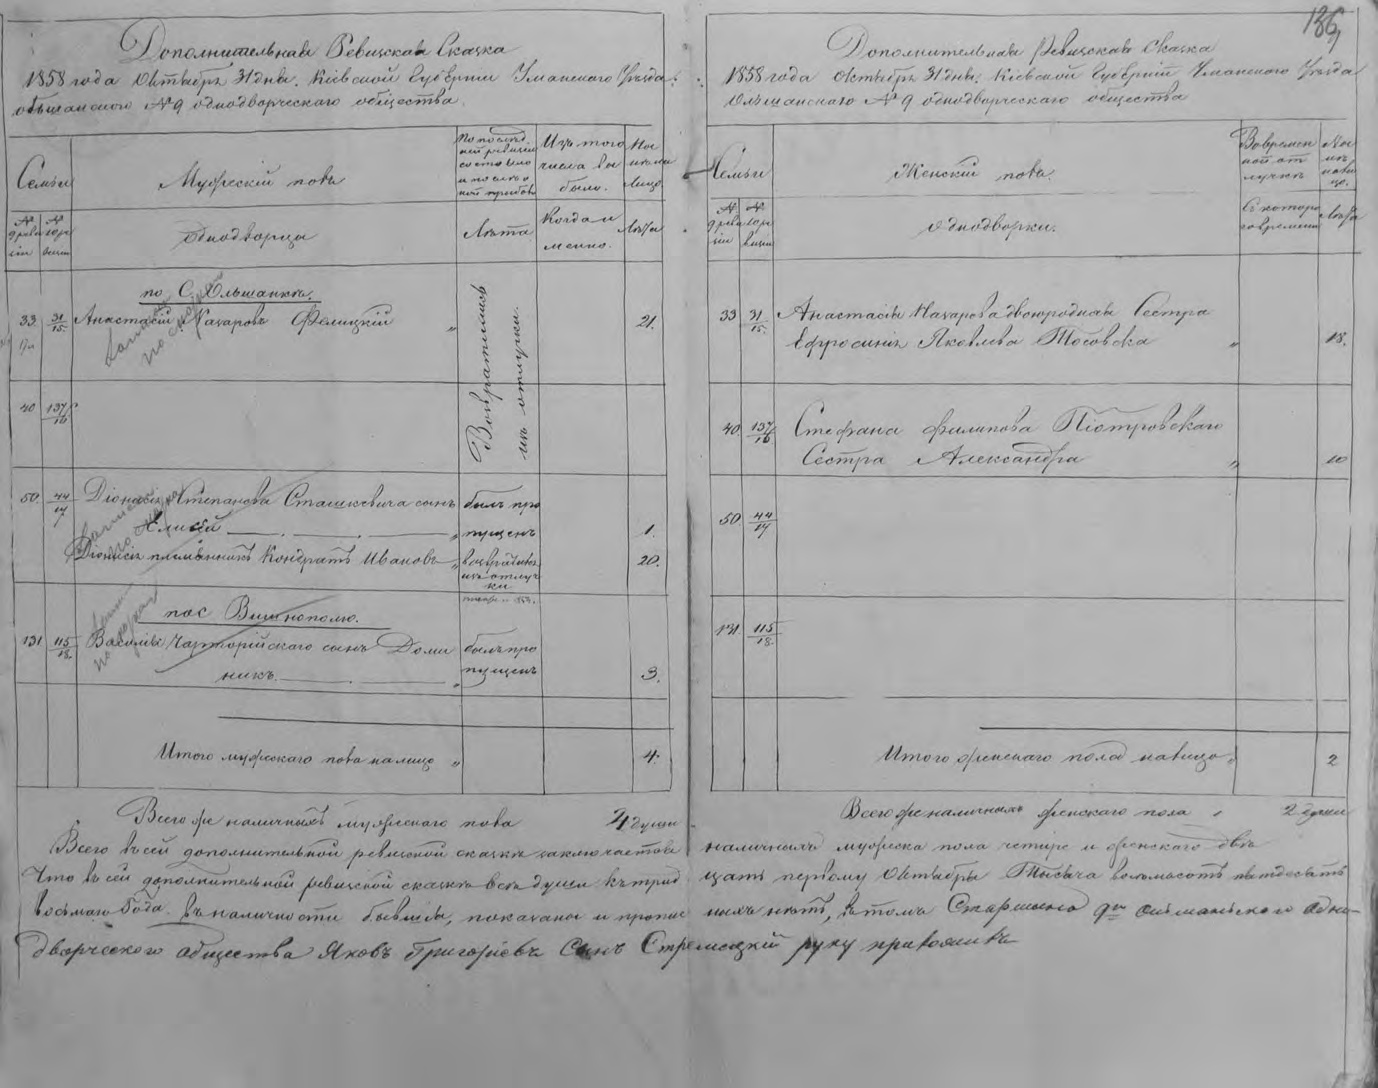 Дополнительная Ревизская Сказка
1858 года Октября 31 дня. Кіевской Губерніи Уманского Уѣзда
Ольшанского № 9 однодворческаго общества.
Семьи
Мужескій полъ
Изъ того числа выбыло.
Ныне на лицо.
№ реви зіи
Однодворцы
Лѣта
Когда именно.
Лѣта
по С. Ольшанкѣ.
33 31/15 Анастасій Назаровъ Фелицкій " 21.
Возвратились изъ отлучки.
40 137/16
50. 44/17 Діонисія Степанова Сташкевича сынъ былъ про
Елисей " пущенъ 1.
Діонисія племянникъ Кондратъ Ивановъ " возвратился изъ отлучки 20.
по С Вишнополю.
131 115/18. Василія Чарторійскаго сынъ Доми былъ про
никъ. " пущенъ 3.
Итого мужескаго пола на лицо " 4.
Всего же наличныхъ мужескаго пола 4 души
136
Дополнительная Ревизская Сказка
1858 года Октября 31 дня. Кіевской Губерніи Уманского Уѣзда
Ольшанскаго № 9 однодворческаго общества
Семьи
Женскій полъ.
Во временной отлучкѣ
Ныне на лицо.
Однодворки.
Съ котораго времени
Лѣта
33 31/15. Анастасія Назарова двоюродная Сестра
Ефросинія Яковлева Тосовска " 18.
40. 137/16 Стефана Филипова Піотровскаго
Сестра Александра " 10
50. 44/17
131. 115/18.
Итого женскаго пола на лицо " 2
Всего же наличныхъ женскаго пола 2 души
Всего въ сей дополнительной ревизской сказкѣ заключается наличныхъ мужеска пола четыре и женскаго двѣ
Что въ сей дополнительной ревизской сказкѣ всѣ души къ тридцать первому Октября Тысяча восьмасотъ пятдесятъ
восьмаго Года въ наличности бывшія, показаны и прописныхъ нѣтъ, въ томъ Старшина Одно-
дворческого общества Яковъ Григоріевъ Сынъ Стремецкій руку приложилъ